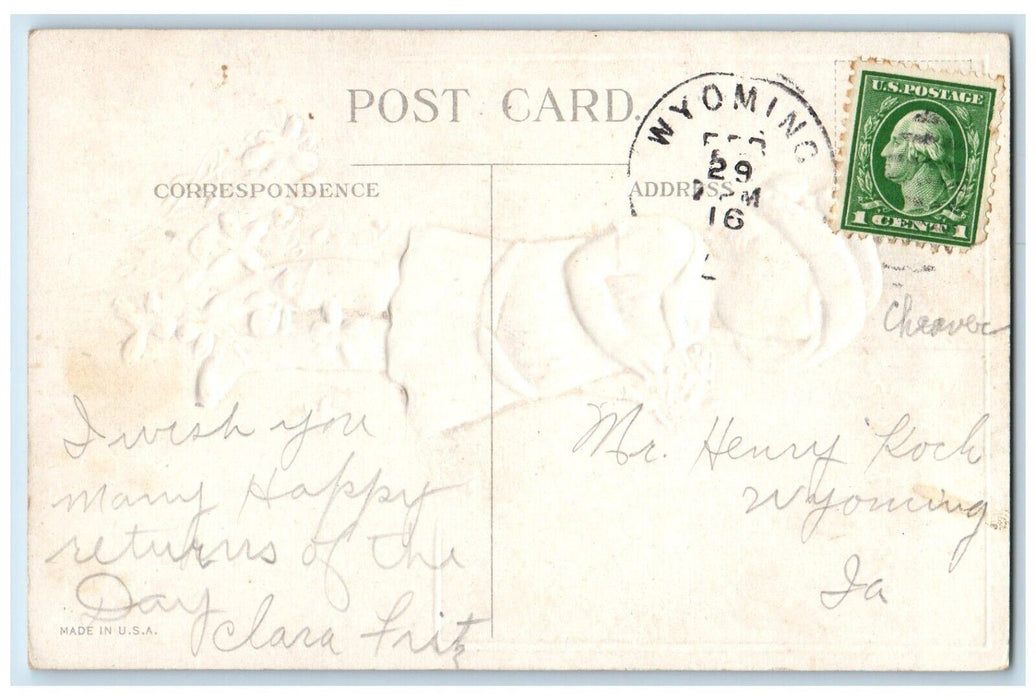 POST CARD.
CORRESPONDENCE
ADDRESS
WYOMING
FEB
29
PM
16
U.S. POSTAGE
1 CENT 1
Cheaver
I wish you
many Happy
returns of the
Day
Clara Fritz
Mr. Henry Koch
Wyoming
Ia
MADE IN U.S.A.